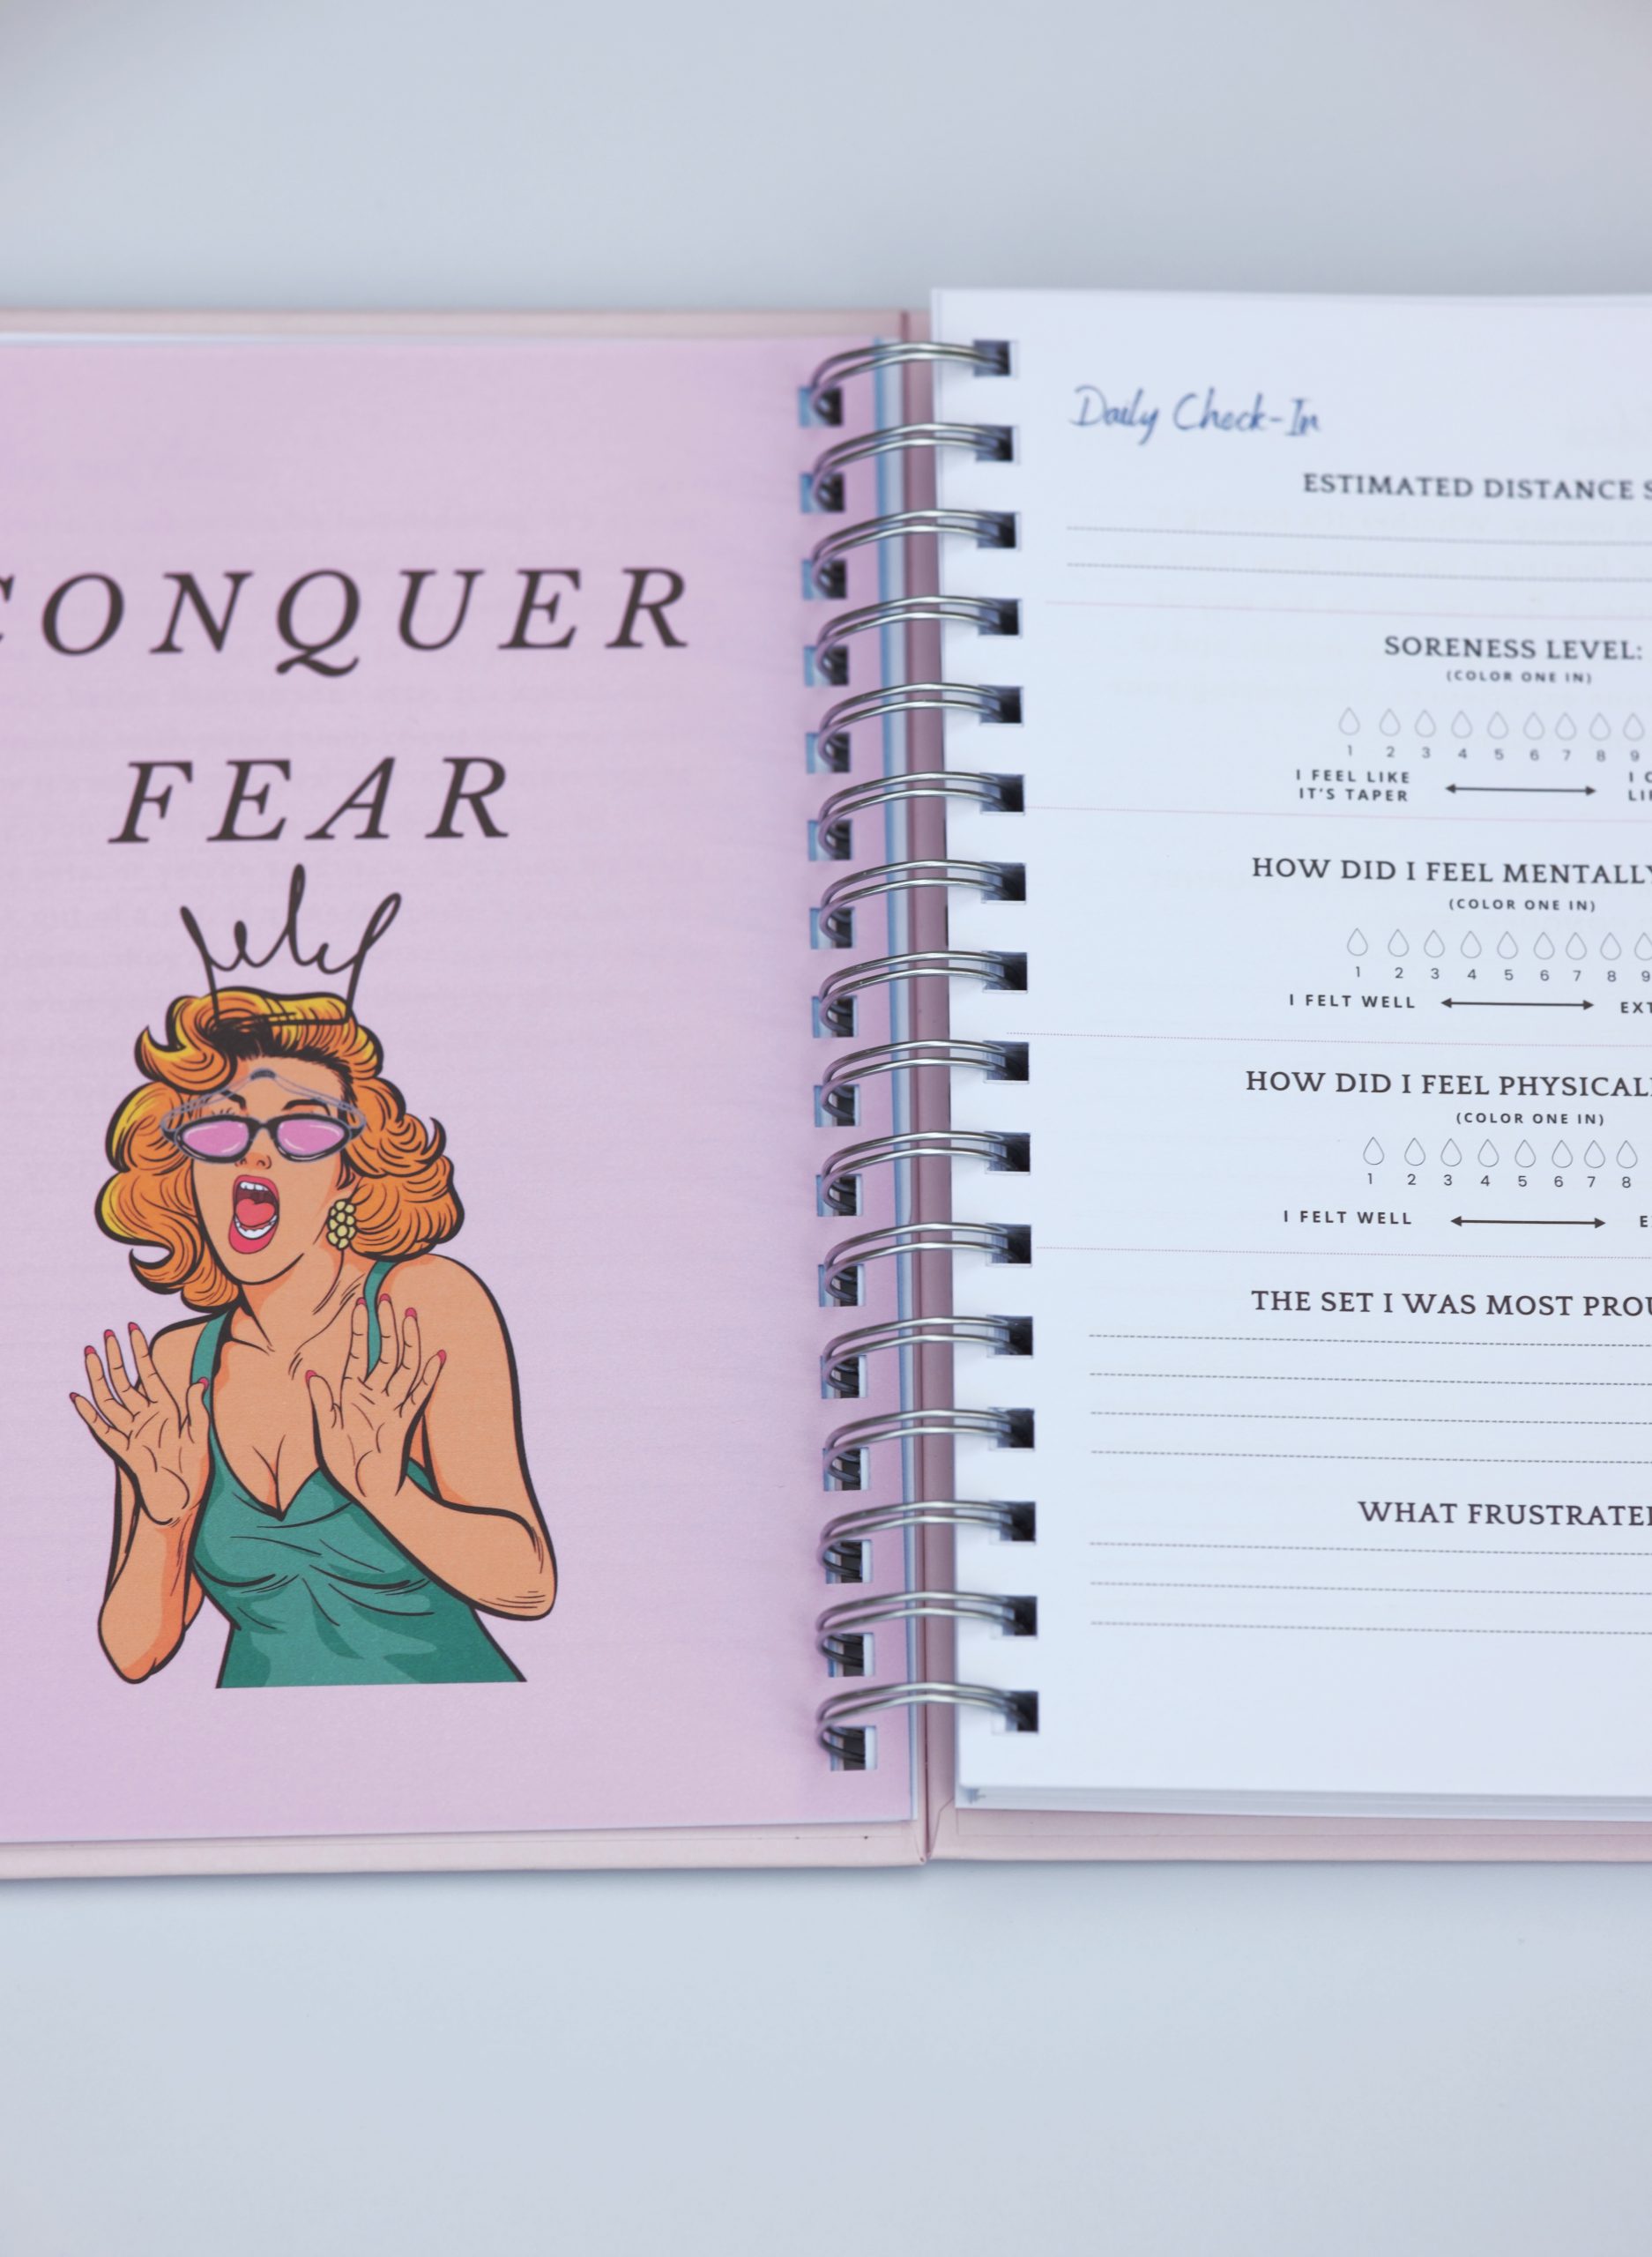 CONQUER
FEAR
Daily Check-In
ESTIMATED DISTANCE S
SORENESS LEVEL:
(COLOR ONE IN)
1 2 3 4 5 6 7 8 9
I FEEL LIKE
IT'S TAPER
HOW DID I FEEL MENTALLY
(COLOR ONE IN)
1 2 3 4 5 6 7 8 9
I FELT WELL EXT
HOW DID I FEEL PHYSICALL
(COLOR ONE IN)
1 2 3 4 5 6 7 8
I FELT WELL
THE SET I WAS MOST PROU
WHAT FRUSTRATE